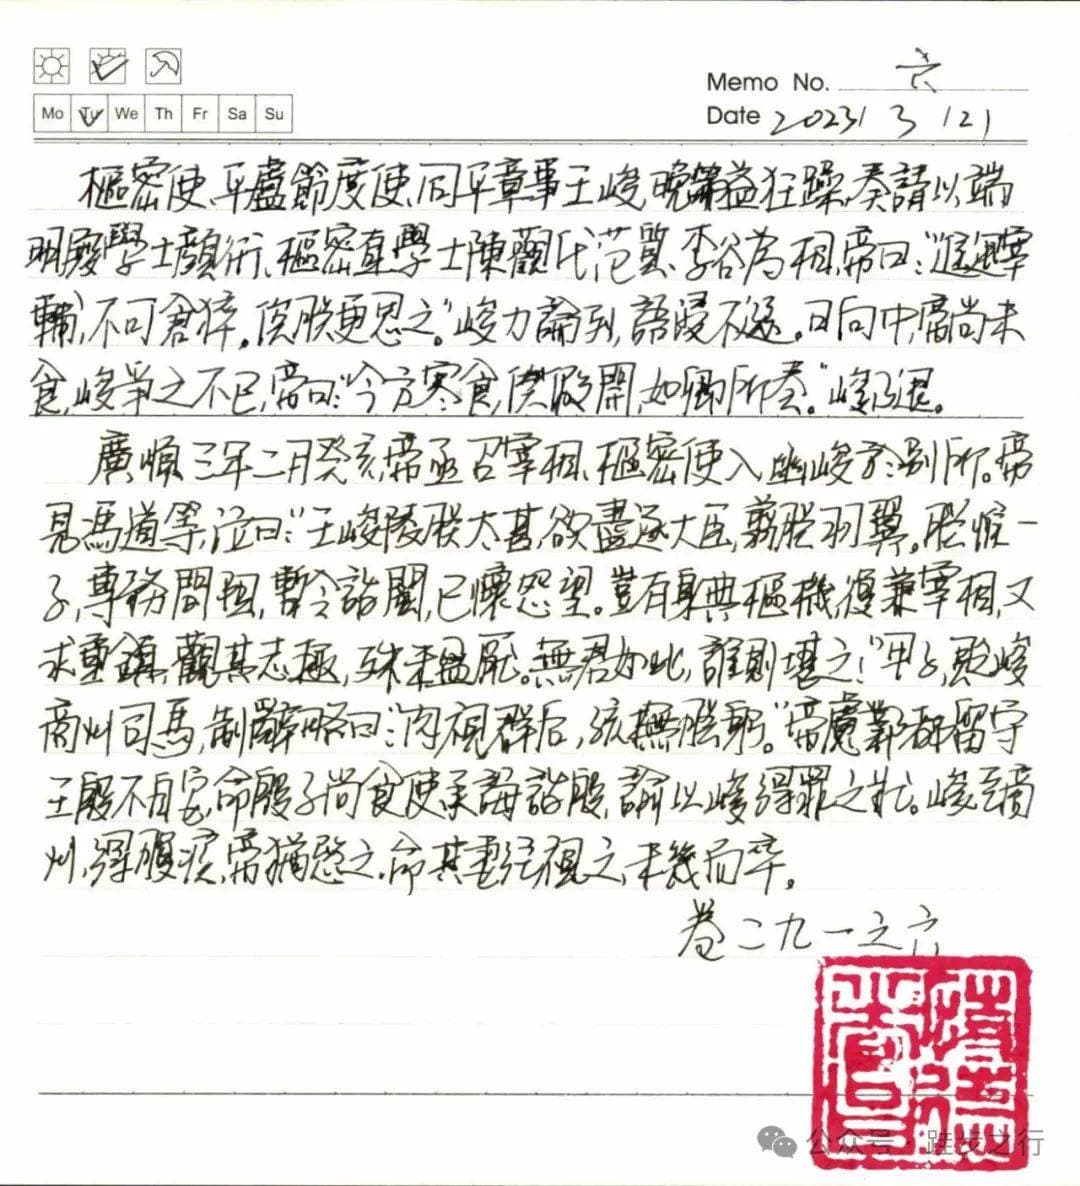 Memo No. 六
Mo Tu We Th Fr Sa Su
Date 2023/3/21
樞密使、平盧節度使、同平章事王峻,晚節益狂躁,奏請以端
明殿學士顏衎、樞密直學士陳觀代范質、李穀為相,帝曰:“進退宰
輔,不可倉猝,俟朕更思之。”峻力論列,語浸不遜。日向中,帝尚未
食,峻爭之不已,帝曰:“今方寒食,俟假開,如卿所奏。”峻乃退。
廣順三年二月癸亥,帝亟召宰相、樞密使入,幽峻於別所。帝
見馮道等,泣曰:“王峻陵朕太甚,欲盡逐大臣,翦朕羽翼。朕惟一
子,專務間阻,暫令詣闕,已懷怨望。豈有身典樞機,復兼宰相,又
求重鎮,觀其志趣,殊未盈厭。無君如此,誰則堪之!”甲子,貶峻
商州司馬,制辭略曰:“肉視群后,孩撫朕躬。”帝慮鄴都留守
王殷不自安,命殷子尚食使承誨詣殷,諭以峻得罪之狀。峻至商
州,得腹疾,帝猶愍之,命其妻往視之,未幾而卒。
卷二九一之六
公众号·跬步之行